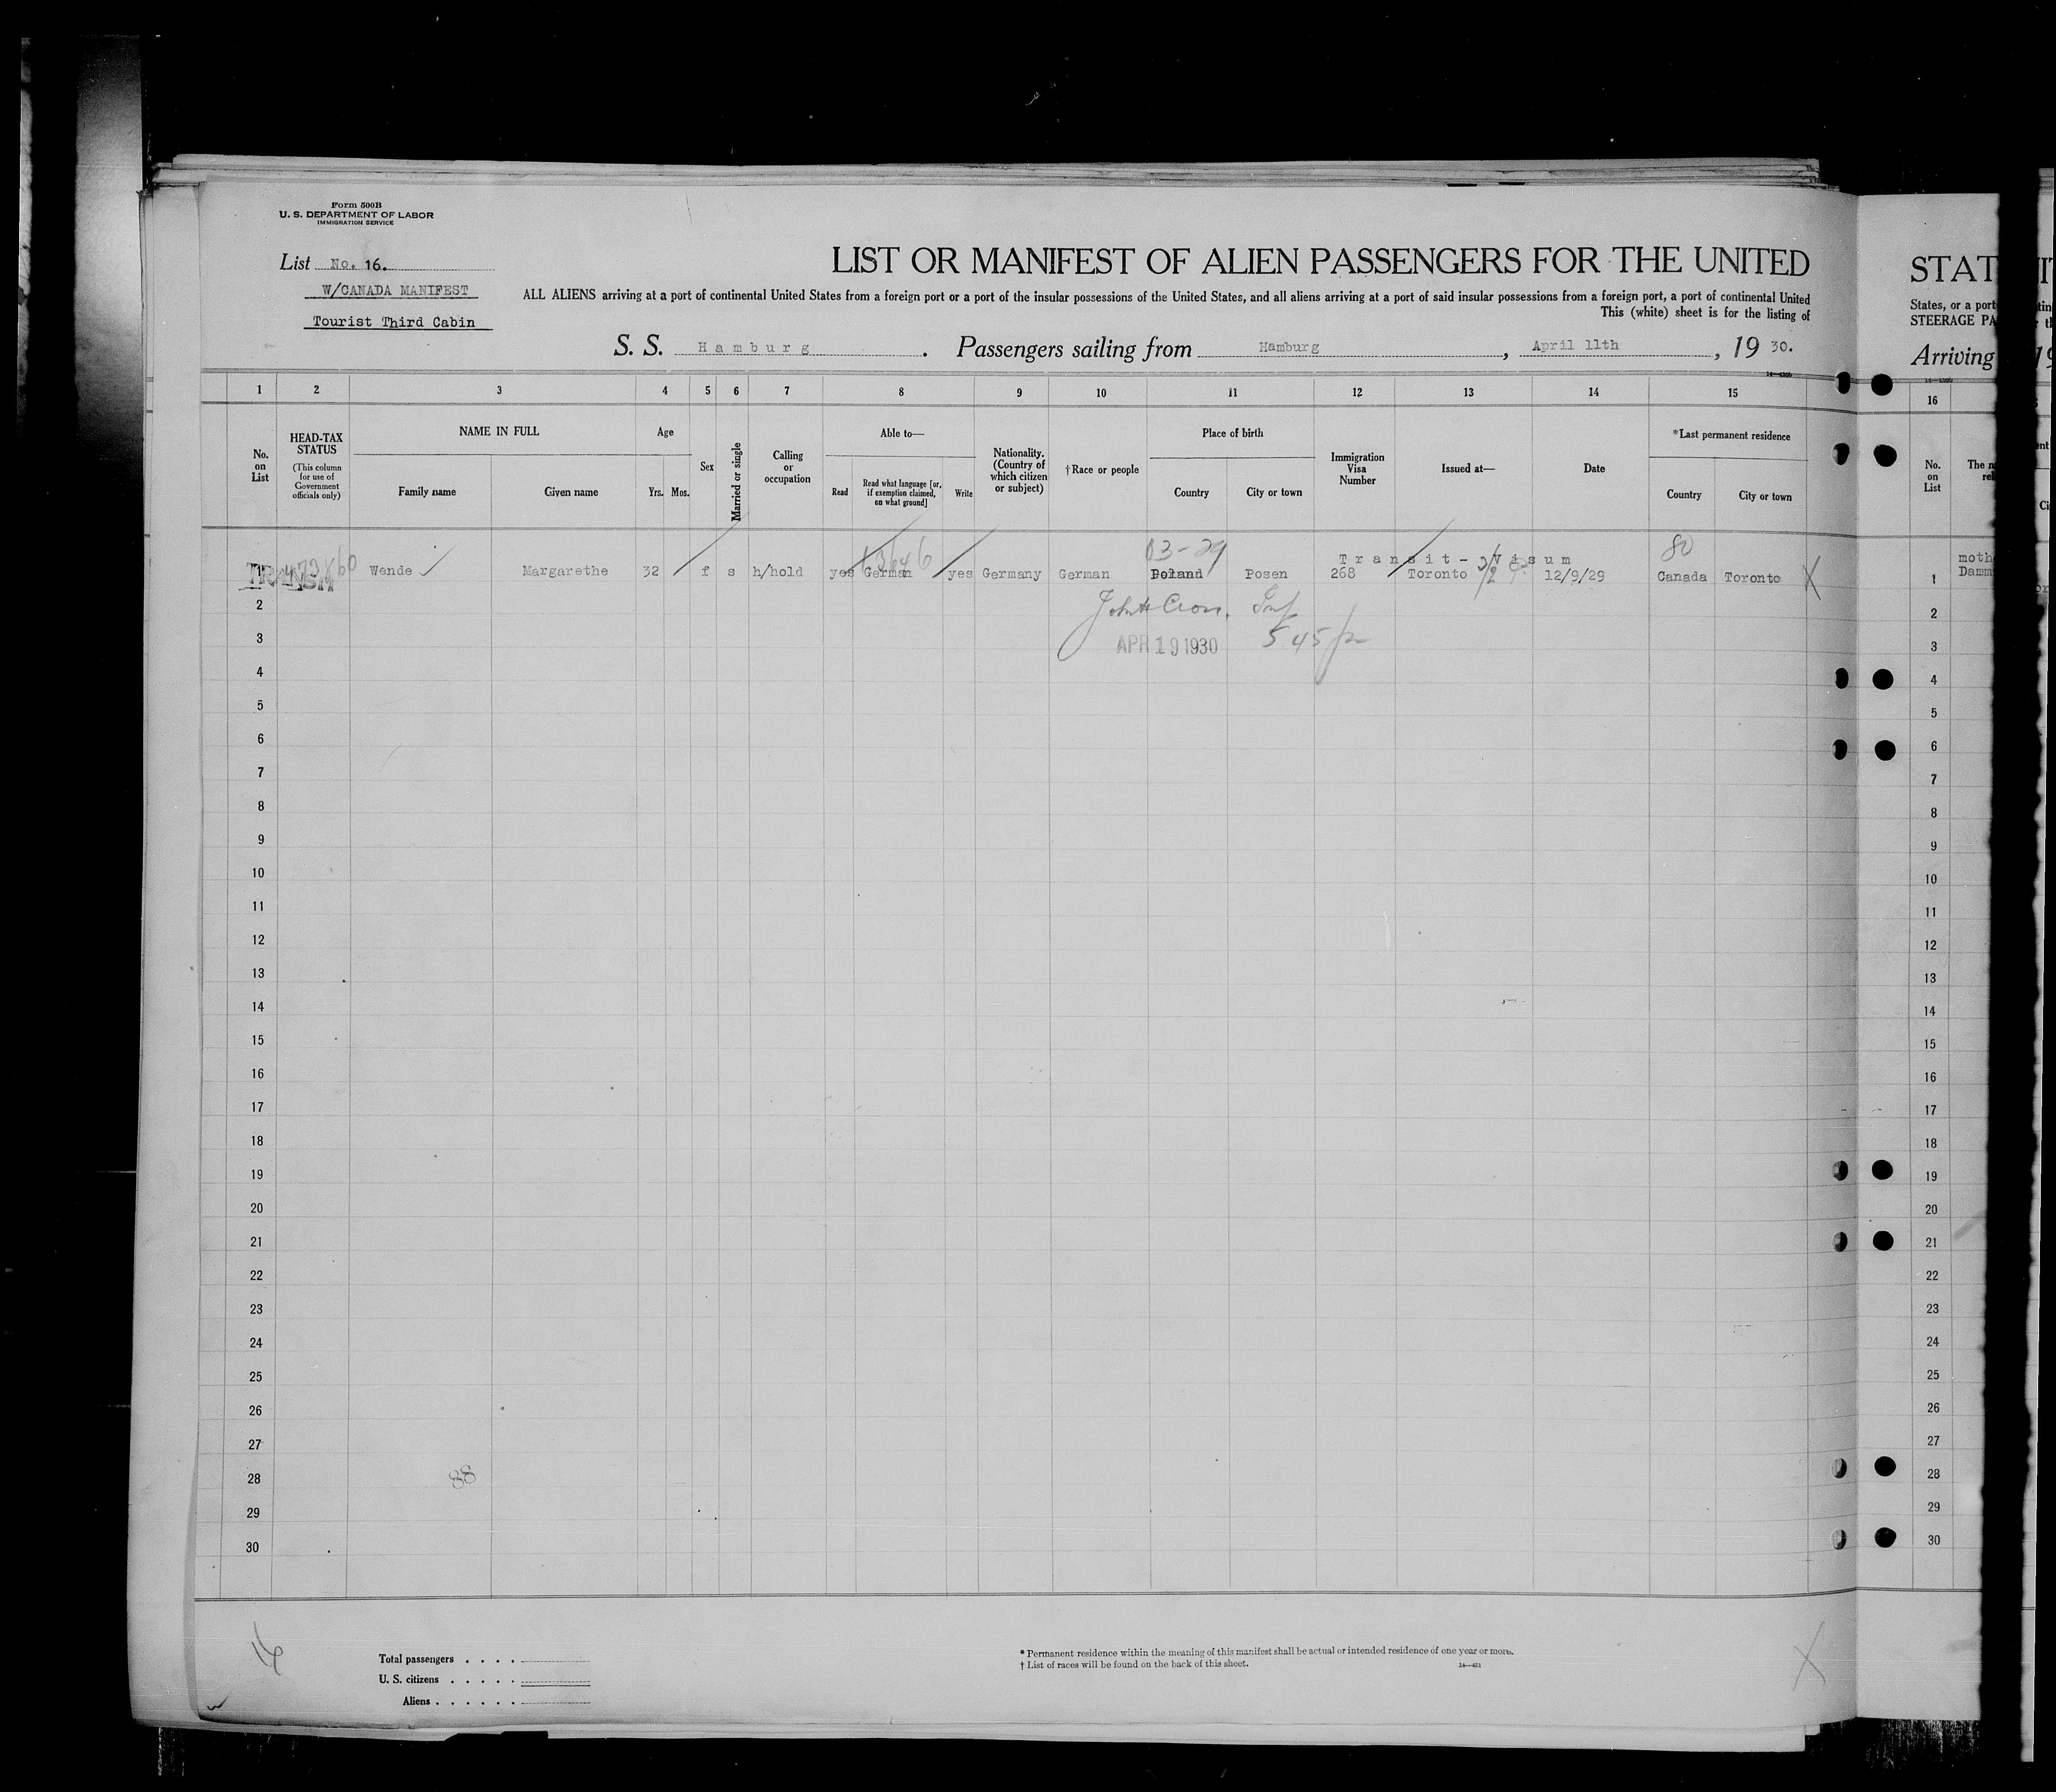 Form 500B
U. S. DEPARTMENT OF LABOR
IMMIGRATION SERVICE
List No. 16.
W/CANADA MANIFEST
Tourist Third Cabin
LIST OR MANIFEST OF ALIEN PASSENGERS FOR THE UNITED
ALL ALIENS arriving at a port of continental United States from a foreign port or a port of the insular possessions of the United States, and all aliens arriving at a port of said insular possessions from a foreign port, a port of continental United
This (white) sheet is for the listing of
S. S. Hamburg. Passengers sailing from Hamburg, April 11th, 1930.
STAT
States, or a port
STEERAGE PA
Arriving
1 2 3 4 5 6 7 8 9 10 11 12 13 14 15
16
No. on List
HEAD-TAX STATUS
(This column for use of Government officials only)
NAME IN FULL
Family name Given name
Age
Yrs. Mos.
Sex
Married or single
Calling or occupation
Able to—
Read
Read what language [or, if exemption claimed, on what ground]
Write
Nationality. (Country of which citizen or subject)
†Race or people
Place of birth
Country City or town
Immigration Visa Number
Issued at—
Date
*Last permanent residence
Country City or town
No. on List
03-29
80
Transit-Visum
1 Wende Margarethe 32 f s h/hold yes German yes Germany German Poland Posen 268 Toronto 12/9/29 Canada Toronto X
1 moth
Damm
2 John H Cron, Insp
3 APR 19 1930 5 45 p
4
5
6
7
8
9
10
11
12
13
14
15
16
17
18
19
20
21
22
23
24
25
26
27
28 88
29
30
2
3
4
5
6
7
8
9
10
11
12
13
14
15
16
17
18
19
20
21
22
23
24
25
26
27
28
29
30
Total passengers . . . .
U. S. citizens . . . . .
Aliens . . . . . .
* Permanent residence within the meaning of this manifest shall be actual or intended residence of one year or more.
† List of races will be found on the back of this sheet.
14—421
X